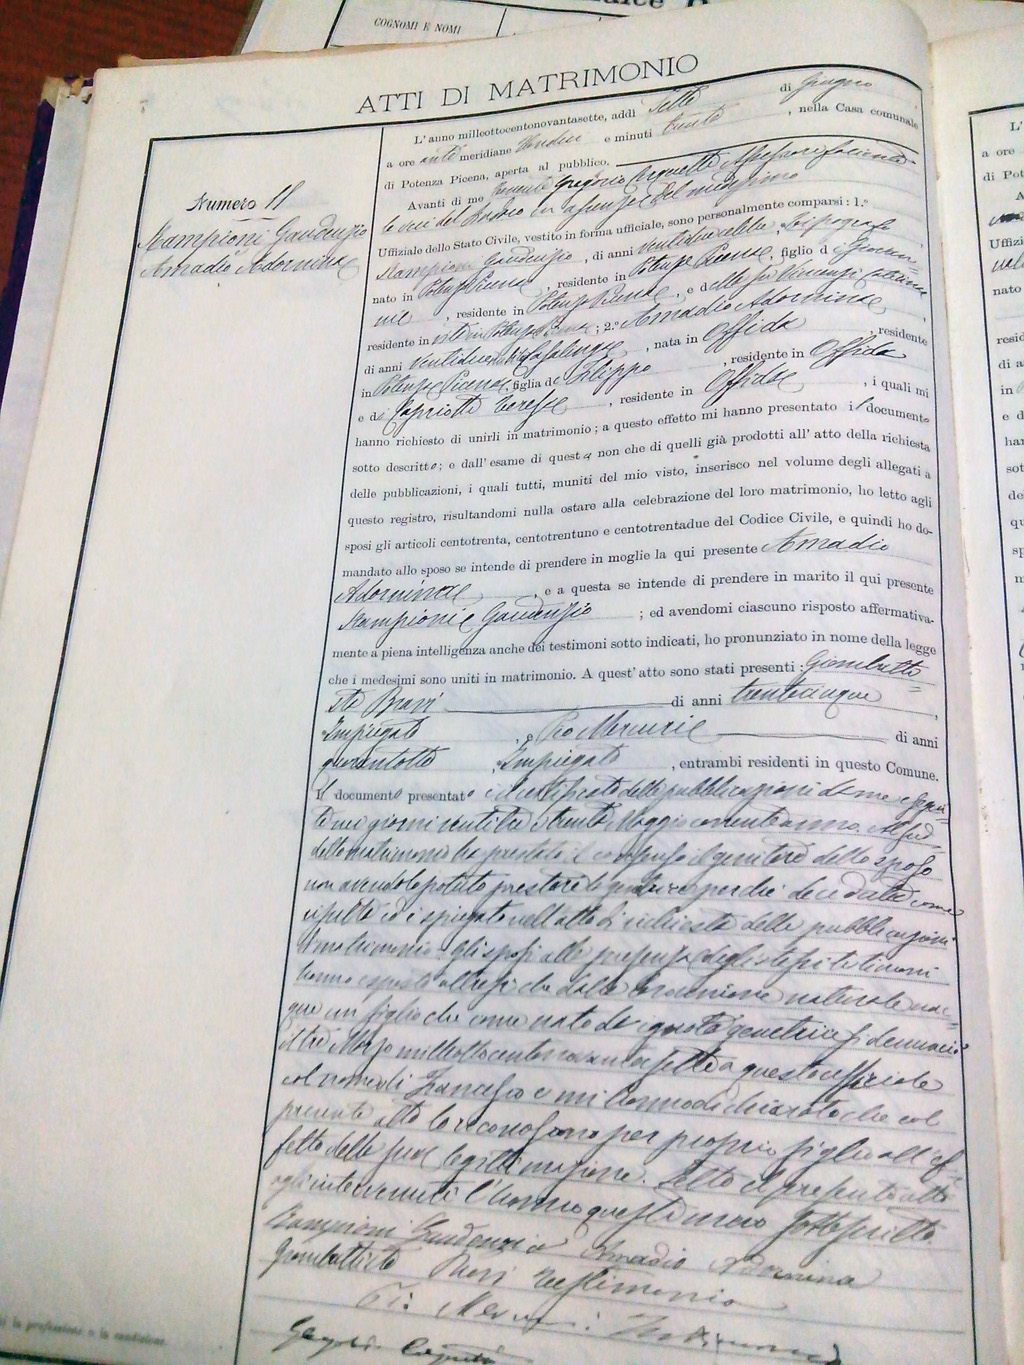 COGNOMI E NOMI
ATTI DI MATRIMONIO
Numero 11
Stampioni Gaudenzio
Amadio Adornina
L'anno milleottocentonovantasette, addì Sette di Giugno
a ore anti meridiane Undici e minuti trenta, nella Casa comunale
di Potenza Picena, aperta al pubblico.
Avanti di me Gregorio Assessore facente
le veci del Sindaco in assenza del medesimo
Uffiziale dello Stato Civile, vestito in forma ufficiale, sono personalmente comparsi: 1.º
Stampioni Gaudenzio, di anni,
nato in Potenza Picena, residente in Potenza Picena, figlio di Giovan-
ni, residente in Potenza Picena, e di Vincenza
residente in vita in Potenza Picena; 2.º Amadio Adornina,
di anni ventidue, nata in Offida, residente
in Potenza Picena, figlia di Filippo, residente in Offida
e di Capriotti Teresa, residente in Offida, i quali mi
hanno richiesto di unirli in matrimonio; a questo effetto mi hanno presentato il documento
sotto descritto; e dall'esame di questo non che di quelli già prodotti all'atto della richiesta
delle pubblicazioni, i quali tutti, muniti del mio visto, inserisco nel volume degli allegati a
questo registro, risultandomi nulla ostare alla celebrazione del loro matrimonio, ho letto agli
sposi gli articoli centotrenta, centotrentuno e centotrentadue del Codice Civile, e quindi ho do-
mandato allo sposo se intende di prendere in moglie la qui presente Amadio
Adornina, e a questa se intende di prendere in marito il qui presente
Stampioni Gaudenzio; ed avendomi ciascuno risposto affermativa-
mente a piena intelligenza anche dei testimoni sotto indicati, ho pronunziato in nome della legge
che i medesimi sono uniti in matrimonio. A quest'atto sono stati presenti: Giambatti-
sta di anni trentacinque,
Impiegato, e Pio Mercuri di anni
quarantotto, Impiegato, entrambi residenti in questo Comune.
Il documento presentato è il certificato delle pubblicazioni da me esegui-
te nei giorni ventitre e trenta Maggio corrente anno. Al sud-
detto matrimonio ha prestato il consenso il genitore dello sposo
non avendolo potuto prestare la genitrice perchè deceduta come
risulta ed è spiegato nell'atto di richiesta delle pubblicazioni
di matrimonio. Gli sposi alla presenza degli stessi testimoni
hanno esposto altresì che dalla loro unione naturale nac-
que un figlio che come nato da ignota genitrice si denunciò
il tre Marzo milleottocentonovantasette a questo ufficiale
col nome di Francesco e mi hanno dichiarato che col
presente atto lo riconoscono per proprio figlio all'ef-
fetto della sua legittimazione. Letto il presente atto
agli intervenuti l'hanno questi meco sottoscritto.
Stampioni Gaudenzio Amadio Adornina
Giambattista testimonio